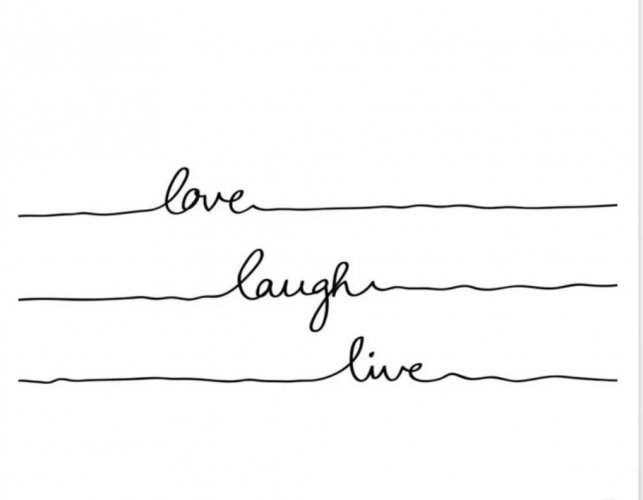 love
laugh
live